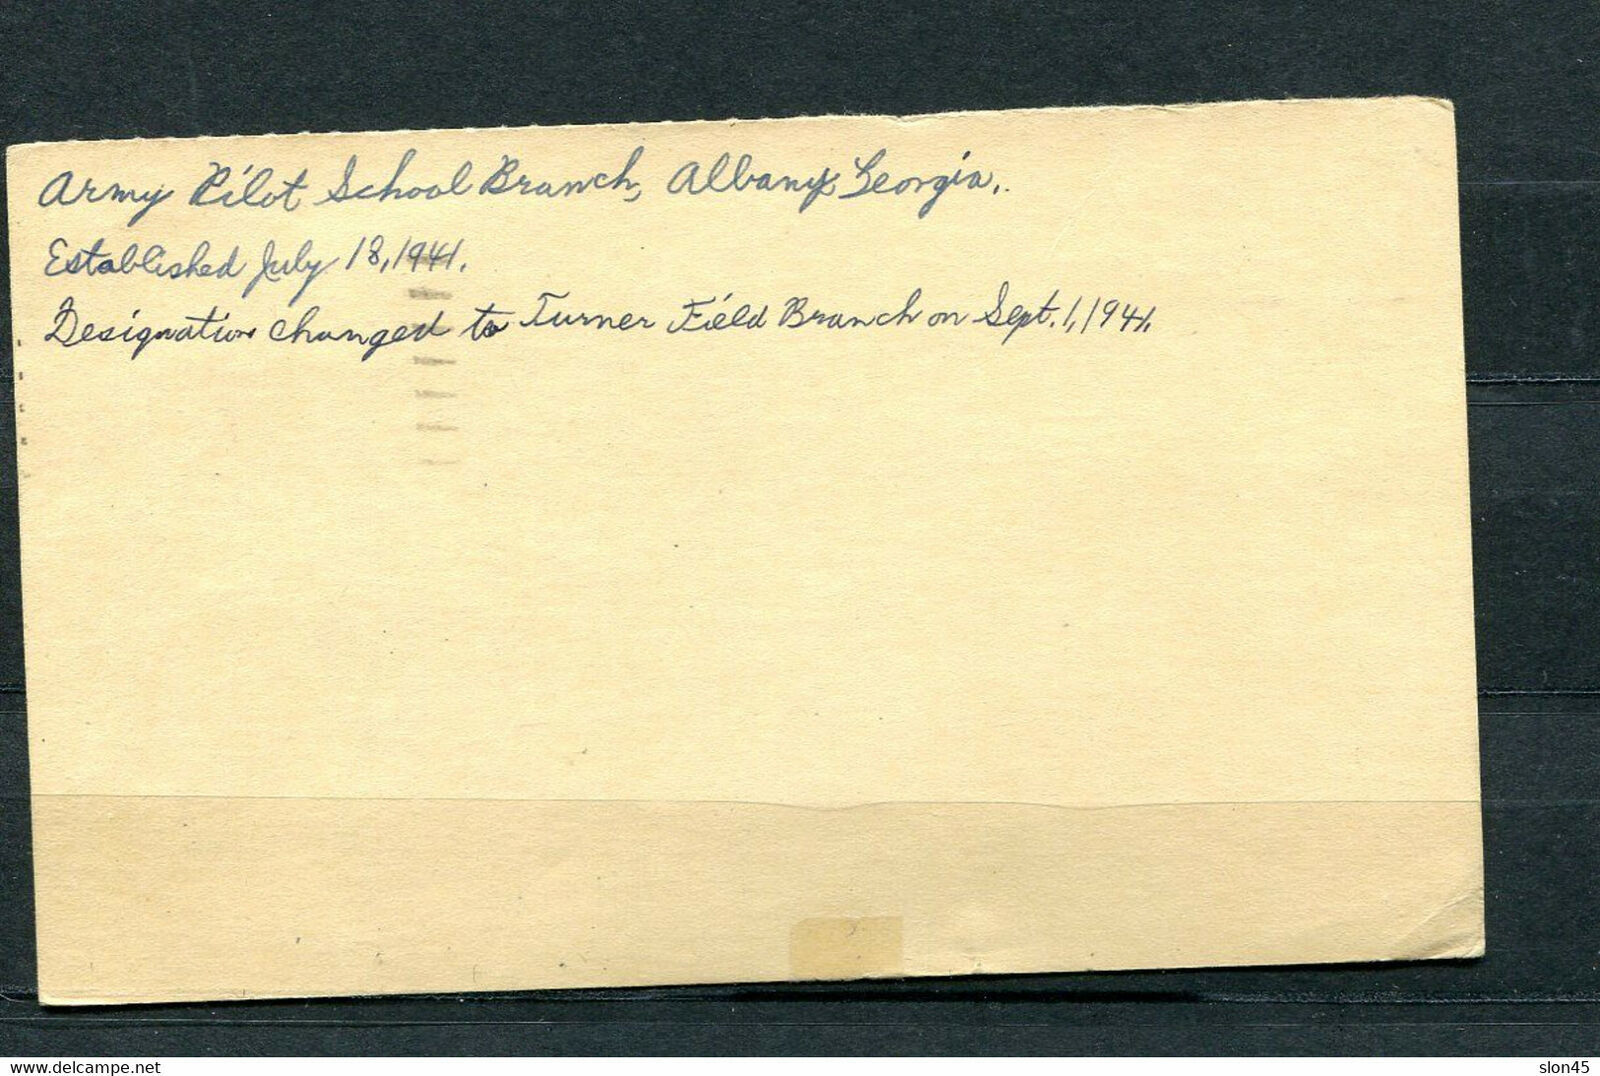 Army Pilot School Branch, Albany, Georgia.
Established July 18, 1941.
Designation changed to Turner Field Branch on Sept. 1, 1941.
www.delcampe.net
slon45